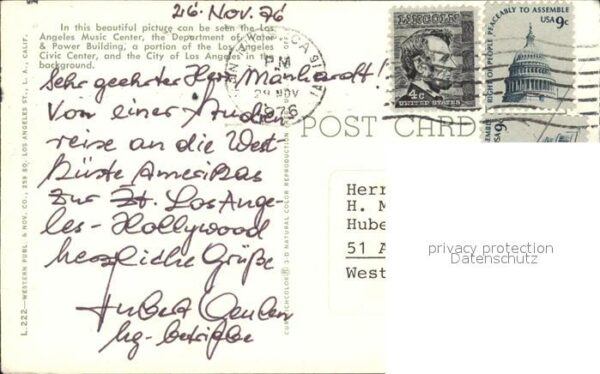 26. Nov. 76
In this beautiful picture can be seen the Los
Angeles Music Center, the Department of Water
& Power Building, a portion of the Los Angeles
Civic Center, and the City of Los Angeles in the
background.
Sehr geehrter Herr Manhardt!
Von einer Studien
reise an die West-
küste Amerikas
zur Zt. Los Ange-
les - Hollywood
herzliche Grüße
Hubert
L.222—WESTERN PUBL. & NOV. CO., 259 SO. LOS ANGELES ST., L.A., CALIF.
3-D NATURAL COLOR REPRODUCTION
CA
PM
NOV
1976
LINCOLN
4¢
UNITED STATES
RIGHT OF PEOPLE PEACEABLY TO ASSEMBLE
USA 9c
POST CARD
Herr
H. M
Hube
51 A
West
privacy protection
Datenschutz